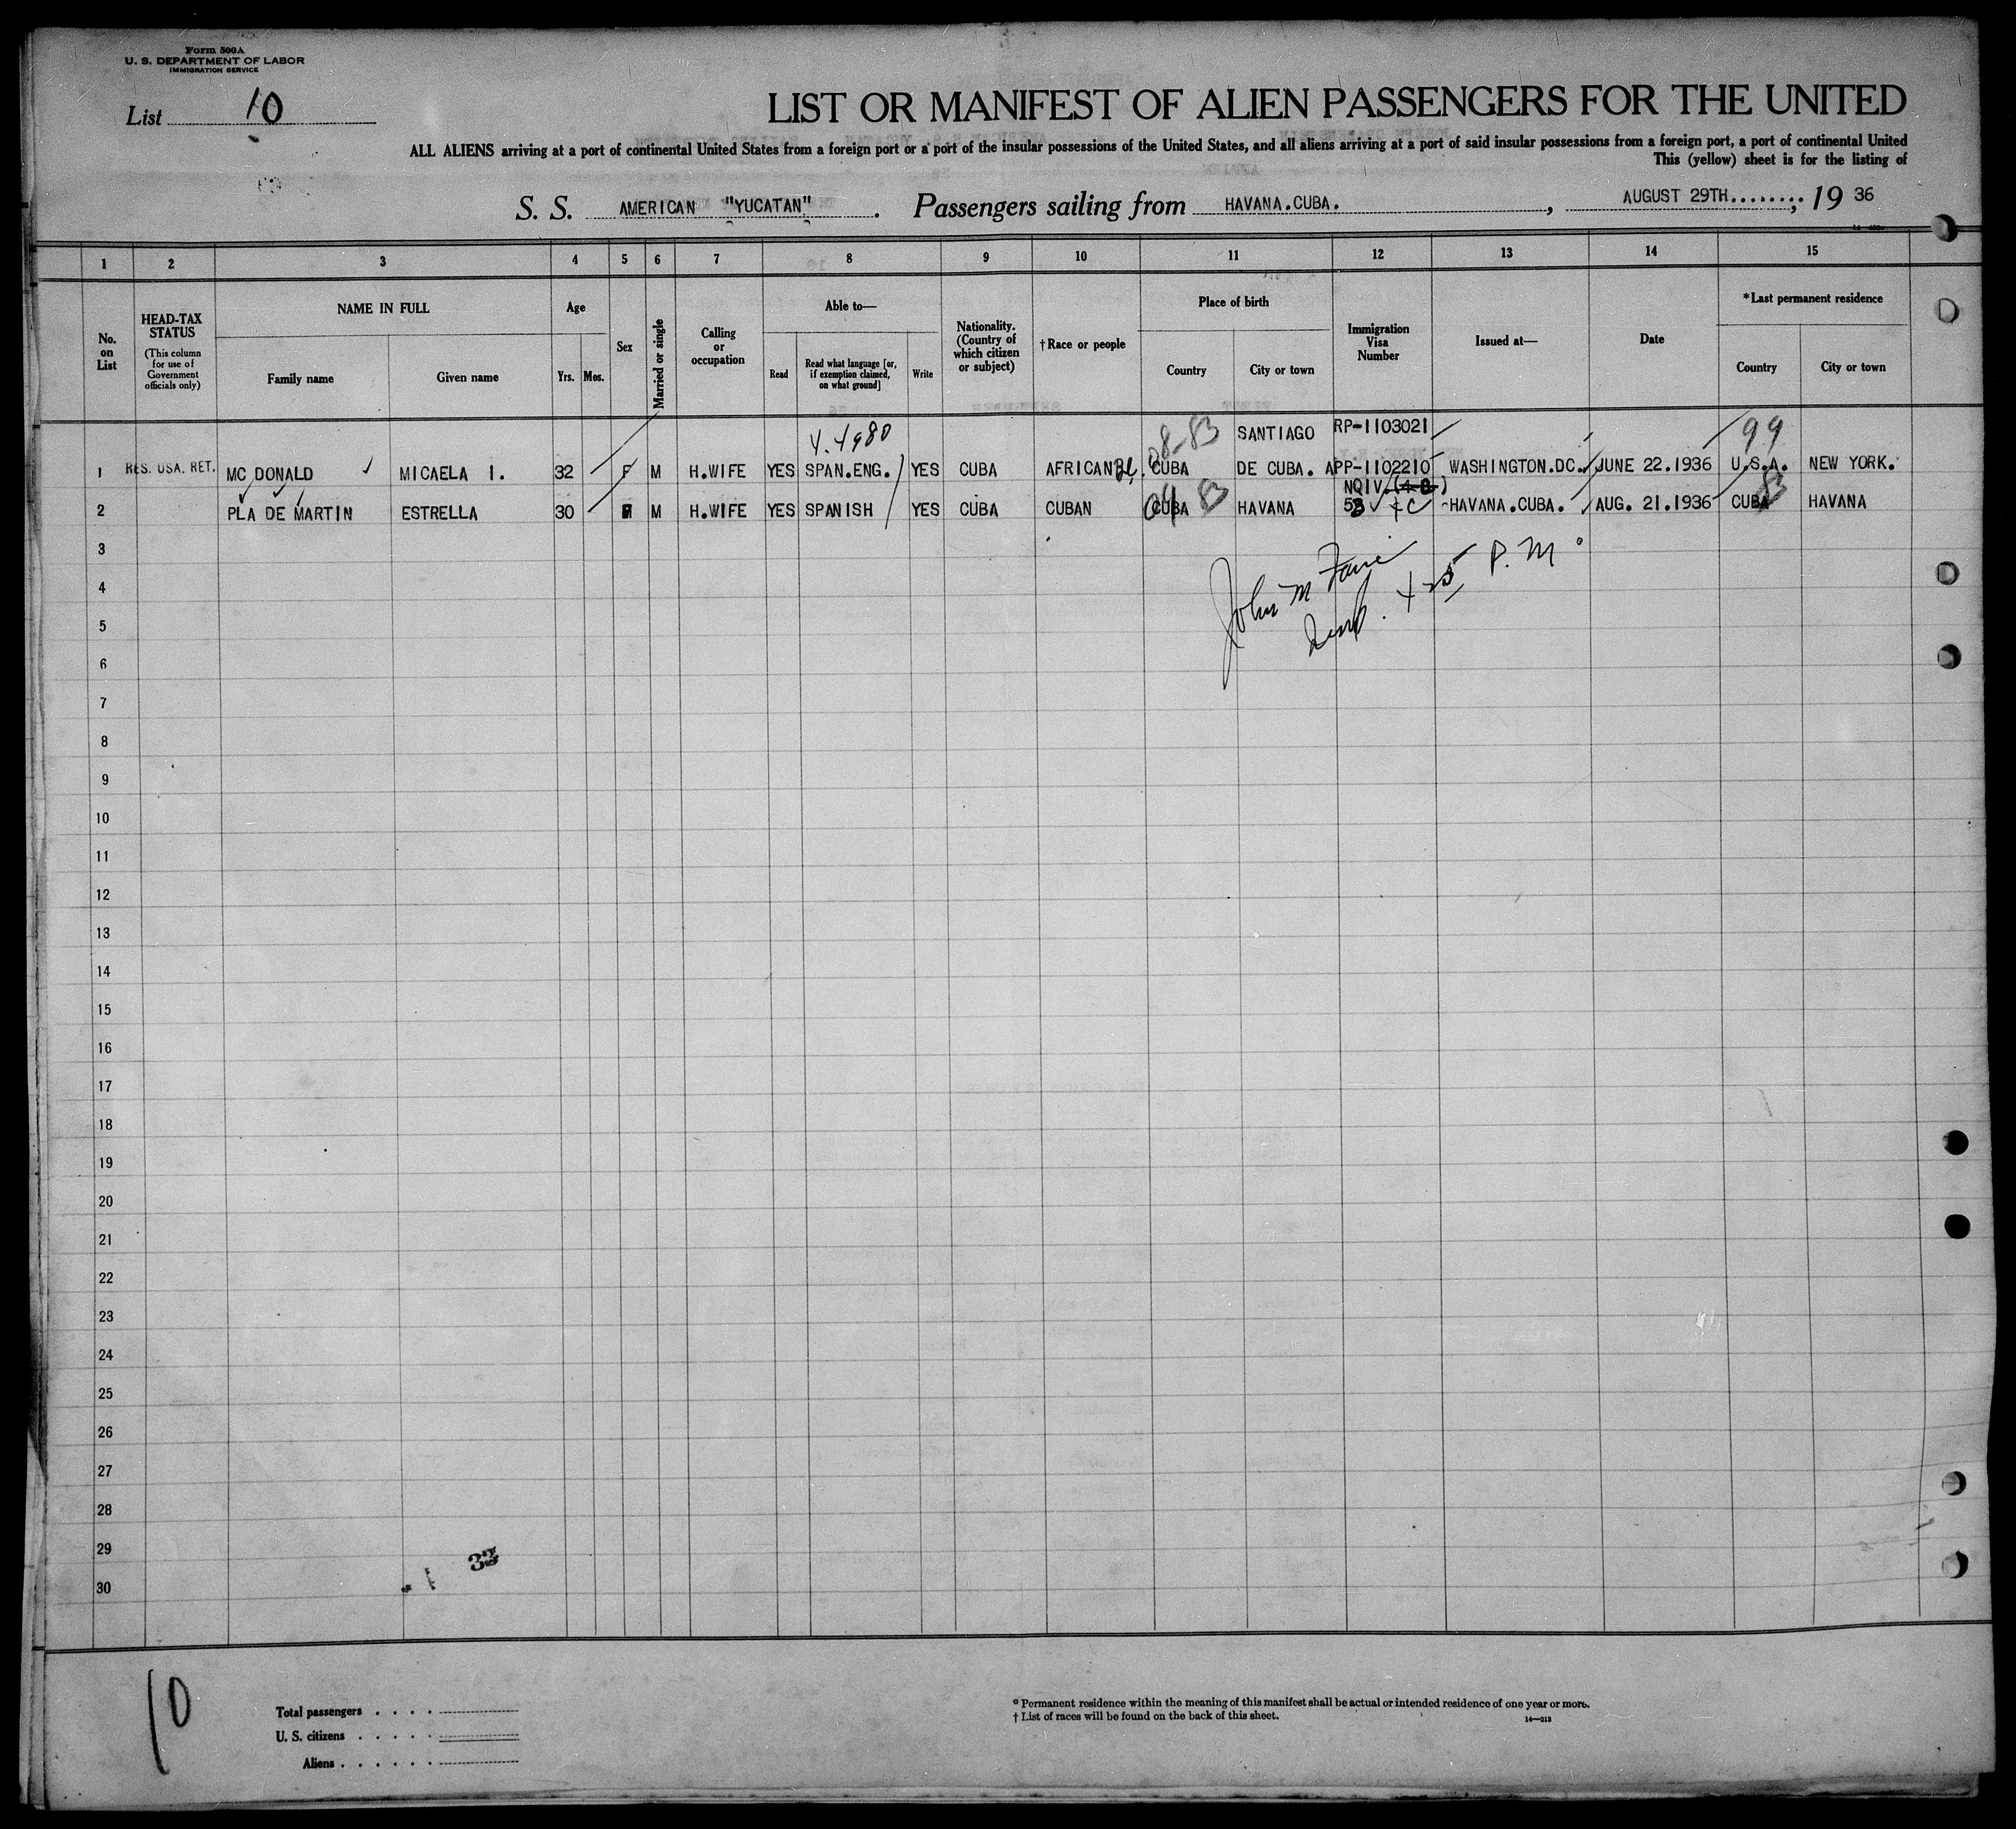 Form 500A
U. S. DEPARTMENT OF LABOR
IMMIGRATION SERVICE
List 10
LIST OR MANIFEST OF ALIEN PASSENGERS FOR THE UNITED
ALL ALIENS arriving at a port of continental United States from a foreign port or a port of the insular possessions of the United States, and all aliens arriving at a port of said insular possessions from a foreign port, a port of continental United
This (yellow) sheet is for the listing of
S. S. AMERICAN "YUCATAN". Passengers sailing from HAVANA.CUBA., AUGUST 29TH........, 19 36
1 2 3 4 5 6 7 8 9 10 11 12 13 14 15
No. on List
HEAD-TAX STATUS
(This column for use of Government officials only)
NAME IN FULL
Family name
Given name
Age
Yrs. Mos.
Sex
Married or single
Calling or occupation
Able to—
Read
Read what language [or, if exemption claimed, on what ground]
Write
Nationality. (Country of which citizen or subject)
†Race or people
Place of birth
Country
City or town
Immigration Visa Number
Issued at—
Date
*Last permanent residence
Country
City or town
4.4980 08-83 SANTIAGO RP-1103021 99
1 RES. USA. RET. MC DONALD MICAELA I. 32 F M H.WIFE YES SPAN.ENG. YES CUBA AFRICAN CUBA DE CUBA. APP-1102210 WASHINGTON.DC. JUNE 22.1936 U.S.A. NEW YORK.
NQIV.
2 PLA DE MARTIN ESTRELLA 30 F M H.WIFE YES SPANISH YES CUBA CUBAN CUBA 83 HAVANA 53 HAVANA.CUBA. AUG. 21.1936 CUBA 83 HAVANA
3
John M
4
P.M.
5
6
7
8
9
10
11
12
13
14
15
16
17
18
19
20
21
22
23
24
25
26
27
28
29
30
10
Total passengers
U. S. citizens
Aliens
* Permanent residence within the meaning of this manifest shall be actual or intended residence of one year or more.
† List of races will be found on the back of this sheet.
14—213